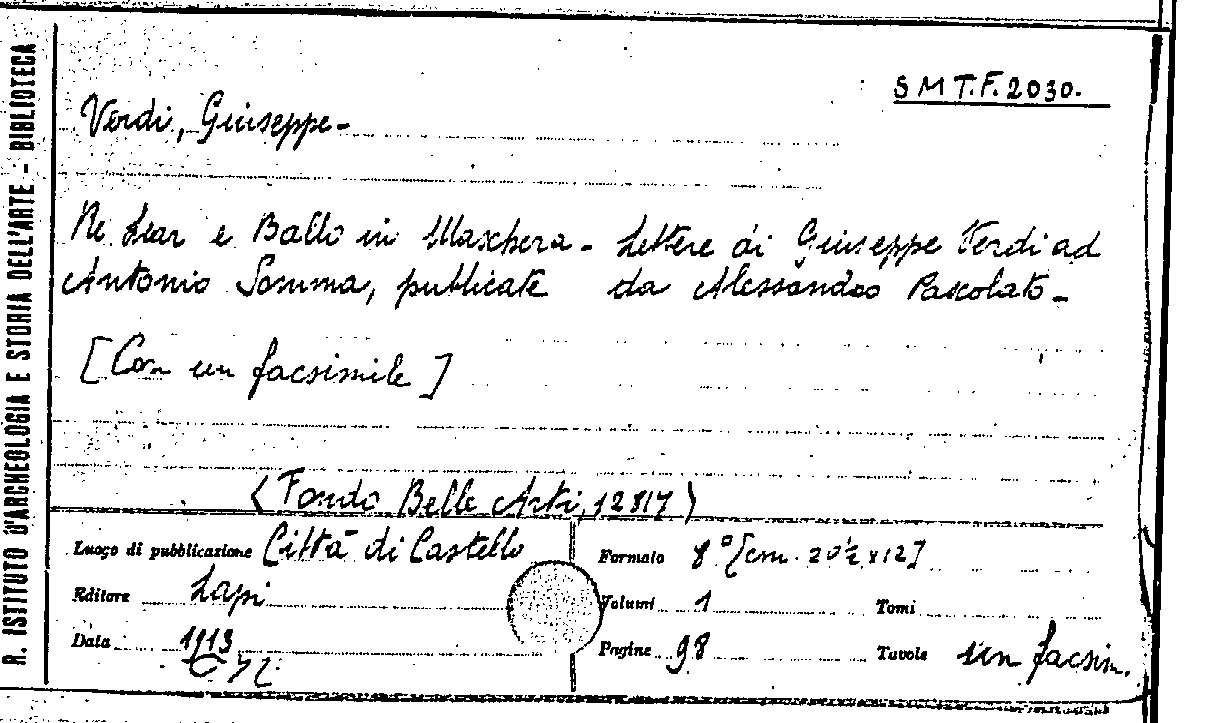 R. ISTITUTO D'ARCHEOLOGIA E STORIA DELL'ARTE - BIBLIOTECA
S M T. F. 2030.
Verdi, Giuseppe -
Re Lear e Ballo in Maschera - Lettere di Giuseppe Verdi ad
Antonio Somma, pubblicate da Alessandro Pascolato -
[Con un facsimile]
(Fondo Belle Arti, 12817)
Luogo di pubblicazione Città di Castello
Formato 8° [cm. 20½ x 12]
Editore Lapi
Volumi 1 Tomi
Data 1913
Pagine 98 Tavole un facsim.